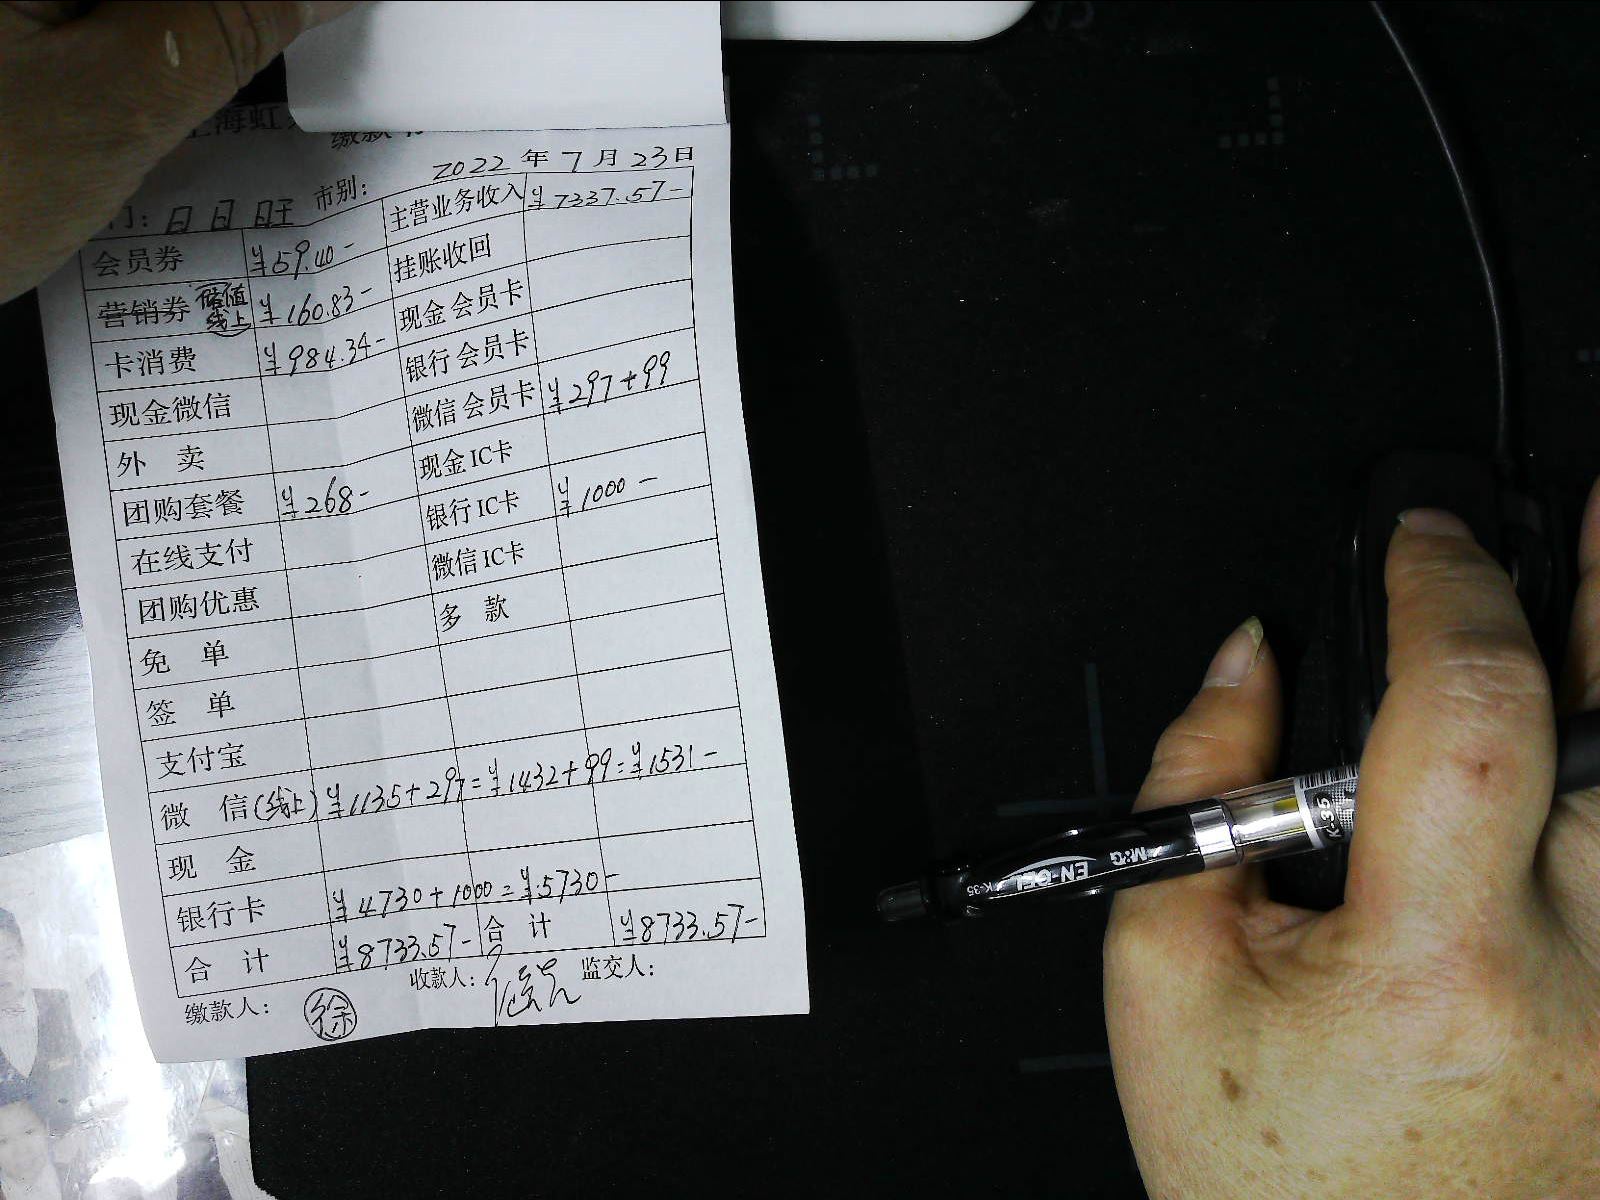 上海虹
缴款
2022 年 7 月 23 日
门: 日日旺 市别:
会员券 ¥59.40- 主营业务收入 ¥7337.57-
营销券 储值线上 ¥160.83- 挂账收回
卡消费 ¥984.34- 现金会员卡
现金微信 银行会员卡
外 卖 微信会员卡 ¥297+99
团购套餐 ¥268- 现金IC卡
在线支付 银行IC卡 ¥1000-
团购优惠 微信IC卡
免 单 多 款
签 单
支付宝
微 信(线上) ¥1135+297=¥1432+99=¥1531-
现 金
银行卡 ¥4730+1000=¥5730-
合 计 ¥8733.57- 合 计 ¥8733.57-
缴款人: 徐 收款人: 监交人:
M&G EN-GEL K-35
K-35